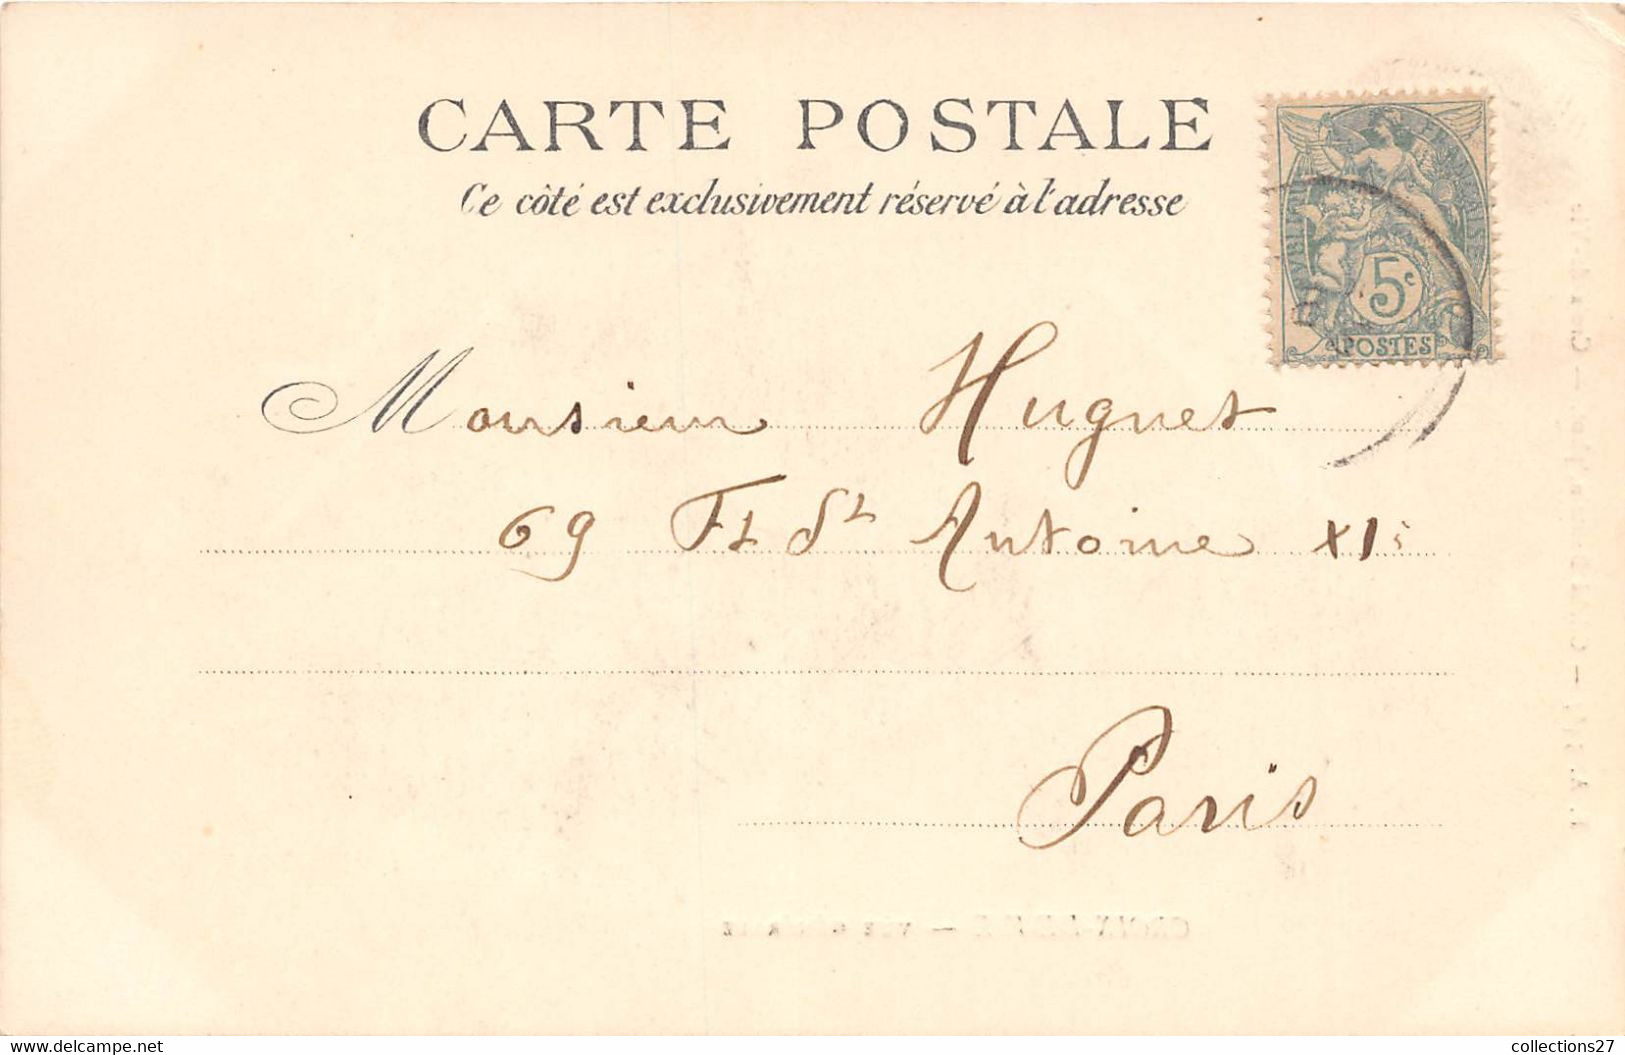 CARTE POSTALE
Ce côté est exclusivement réservé à l'adresse
5c
POSTES
Monsieur Huguet
69 Ft St Antoine XI
Paris
https://www.delcampe.net
collections27